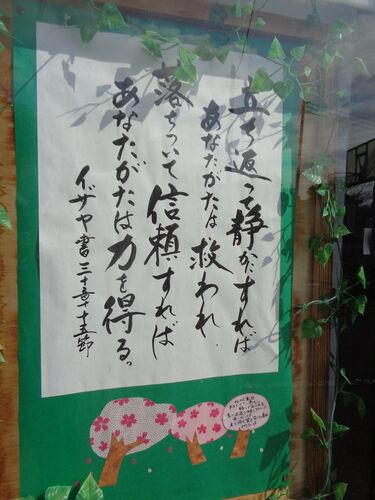 立ち返って静かにすれば
あなたがたは救われ、
落ちついて信頼すれば
あなたがたは力を得る。
イザヤ書三十章十五節